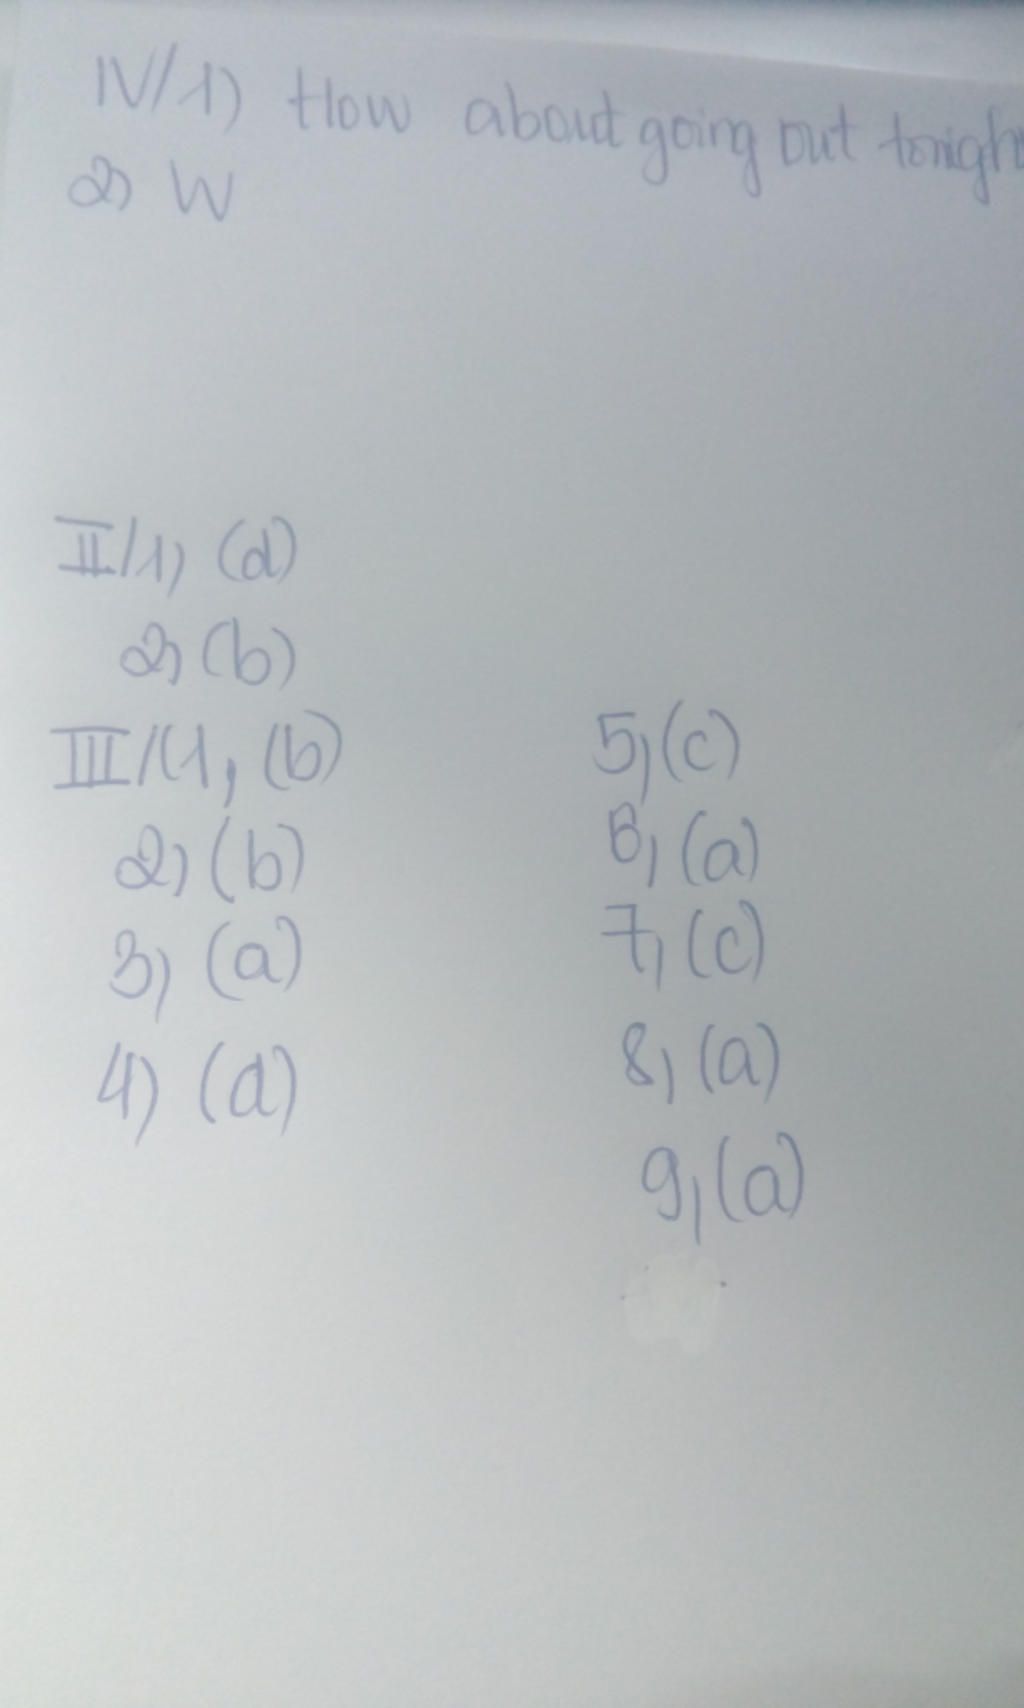 IV/1) How about going out tonigh
2) W
II/1) (d)
2) (b)
III/(1, (b)
2) (b)
3) (a)
4) (d)
5) (c)
6) (a)
7) (c)
8) (a)
9) (a)